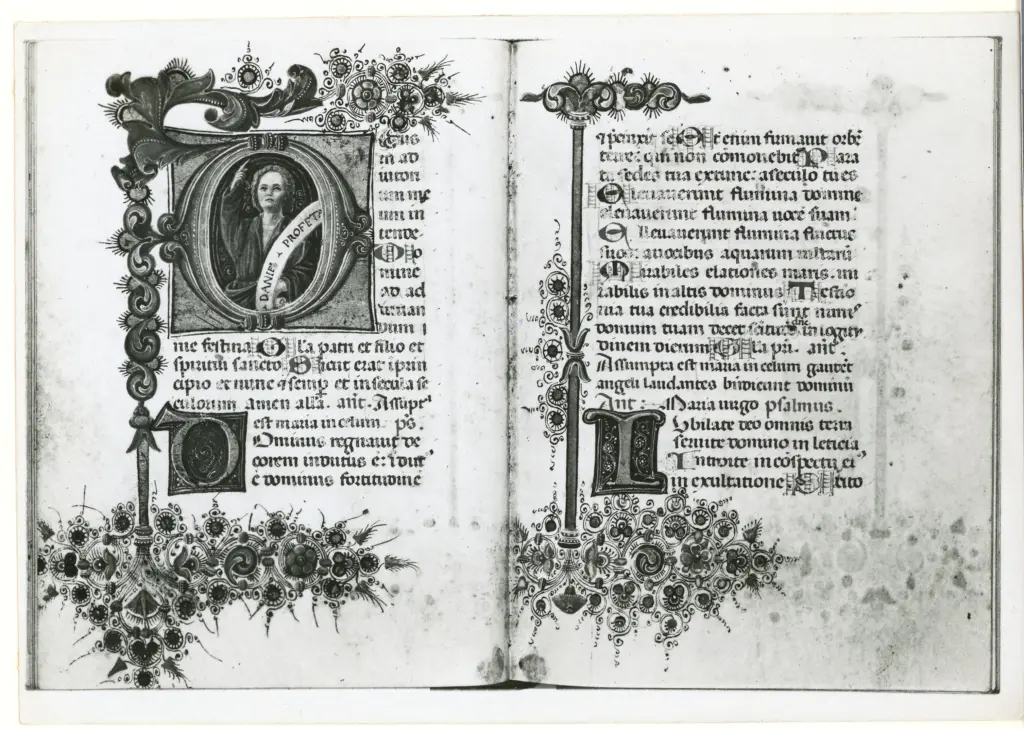 DANIEL PROFETA
eus
in ad
iutori
um me
um in
tende.
Do
mine
ad ad
iuvan
dum
me festina Gl̄a patri et filio et
spiritui sancto. Sicut erat i prin
cipio et nunc ⁊ semp̄ et in secula se
culorum amen all̄a. ant̄. Assupt
est maria in celum. ps̄.
Dominus regnavit de
corem indutus ē: idut
ē dominus fortitudinē
⁊ p̄cinxit se Et enim firmavit orbē
terre: qui non comovebit̄ Para
ta sedes tua extunc: a seculo tu es
Elevaverunt flumina domine
elevaverunt flumina vocē suam
Elevaverunt flumina fluctus
suos: a vocibus aquarum multarū
Mirabiles elationes maris. mi
rabilis in altis dominus Testio
nia tua credibilia facta sunt nimis
domum tuam decet scitudo dn̄e in logitu
dinem dierum Gl̄a pr̄i. ant̄.
Assumpta est maria in celum gaudēt
angeli laudantes bn̄dicunt dominū
Ant̄: Maria virgo psalmus.
Iubilate deo omnis terra
servite domino in leticia
Introite in cōspectu ei
in exultatione Scito